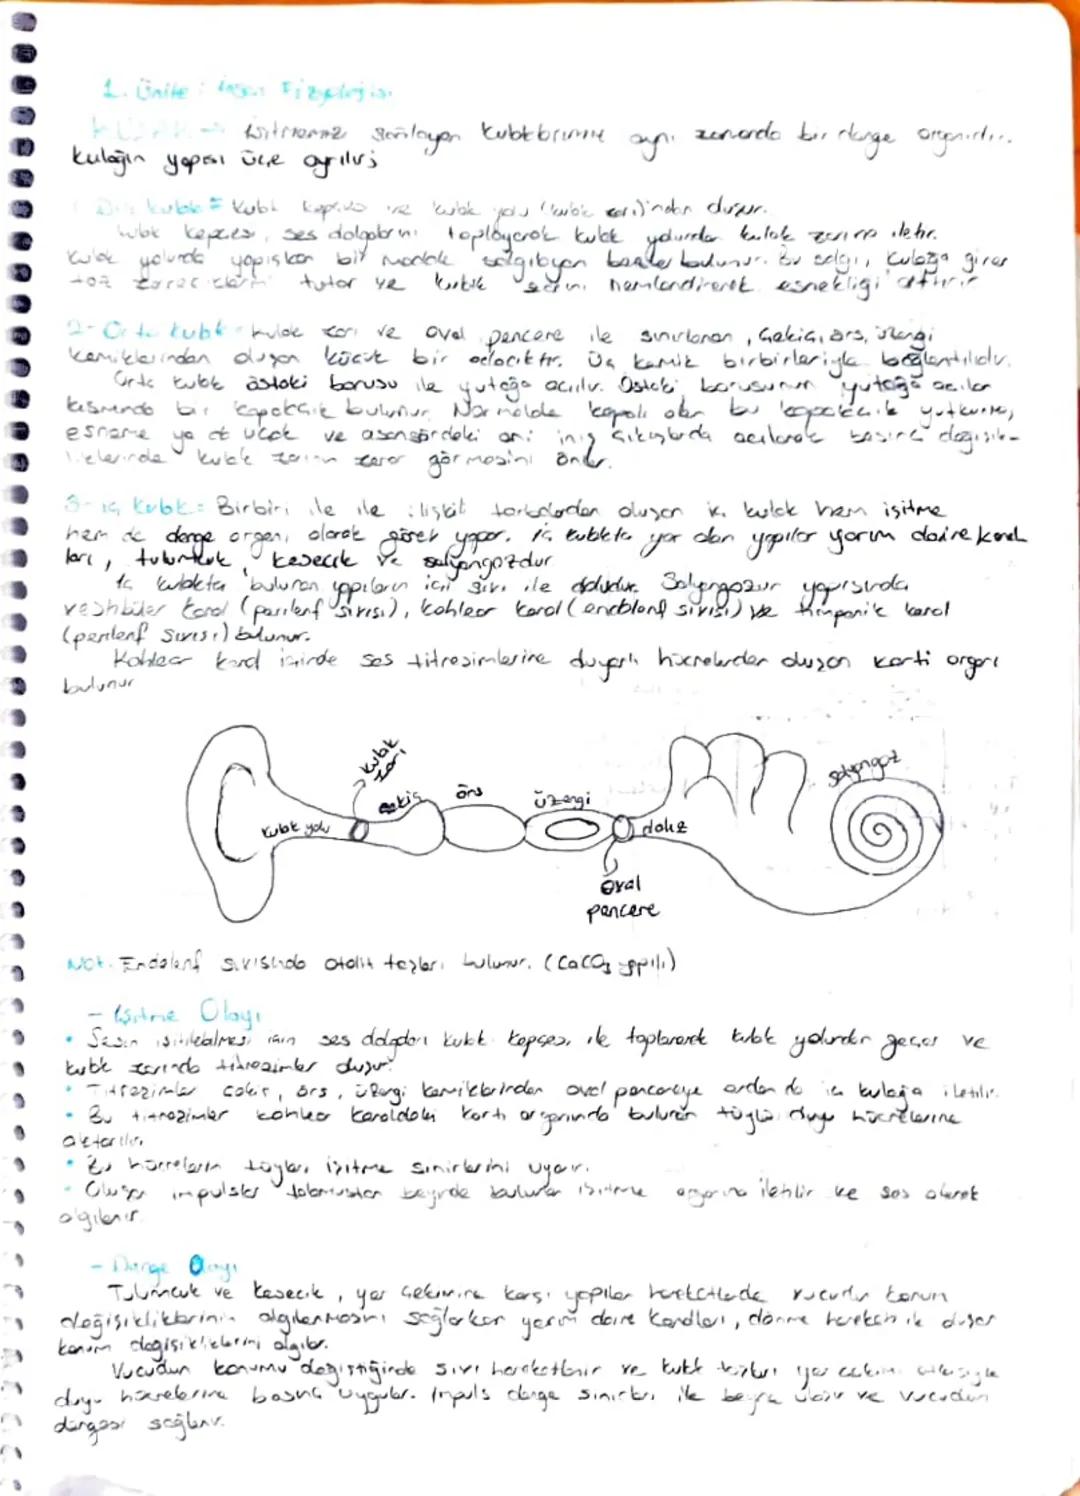 1. Ünite: İnsan Fizyolojisi
KULAK → İşitmemizi sağlayan kulaklarımız aynı zamanda bir denge organıdır.
Kulağın yapısı üçe ayrılır;
1- Dış kulak = Kulak kepçesi ve kulak yolu (kulak zarı)'ndan oluşur.
Kulak kepçesi, ses dalgalarını toplayarak kulak yolundan kulak zarına iletir.
Kulak yolunda yapışkan bir madde salgılayan bezler bulunur. Bu salgı, kulağa giren
toz tutar ve kulak zarını nemlendirerek esnekliği arttırır
2- Orta kulak kulak zarı ve oval pencere ile sınırlanan, Çekiç, örs, üzengi
kemiklerinden oluşan küçük bir odacıktır. Üç kemik birbirleriyle bağlantılıdır.
Orta kulak östaki borusu ile yutağa açılır. Östaki borusunun yutağa açılan
kısmında bir kapakçık bulunur. Normalde kapalı olan bu kapakçık yutkunma,
esneme ya da uçak ve asansördeki ani iniş çıkışlarda açılarak basınç değişik-
liklerinde kulak zarının zarar görmesini önler.
3- iç kulak: Birbiri ile ile ilişkili torbalardan oluşan iç kulak hem işitme
hem de denge organı olarak görev yapar. iç kulakta yer alan yapılar yarım daire kanal
ları, tulumcuk, kesecik ve salyangozdur
iç kulakta bulunan yapıların içi sıvı ile doludur. Salyangozun yapısında
vestibüler kanal (perilenf sıvısı), kohlear kanal (endolenf sıvısı) ve timpanik kanal
(perilenf sıvısı) bulunur.
Kohlear kanal içinde ses titreşimlerine duyarlı hücrelerden oluşan korti organı
bulunur
kulak
zarı
kulak yolu
çekiç
örs
üzengi
oval
pencere
dalız
salyangoz
Not: Endolenf sıvısında otolit taşları bulunur. (CaCO3 yapılı)
- İşitme Olayı
• Sesin işitilebilmesi için ses dalgaları kulak kepçesi ile toplanarak kulak yolundan geçer ve
kulak zarında titreşimler oluşur.
• Titreşimler çekiç, örs, üzengi kemiklerinden oval pencereye ardından da iç kulağa iletilir.
• Bu titreşimler kohlear kanaldaki korti organında bulunan tüylü duyu hücrelerine
aktarılır.
• Bu hücrelerin tüyleri işitme sinirlerini uyarır.
• Oluşan impulslar talamustan beyinde bulunan işitme organına iletilir ve ses olarak
algılanır.
- Denge Olayı
Tulumcuk ve kesecik, yer çekimine karşı yapılan hareketlerde vücudun konum
değişikliklerinin algılanmasını sağlarken yarım daire kanalları, dönme hareketi ile oluşan
konum değişikliklerini algılar.
Vücudun konumu değiştiğinde sıvı hareketlenir ve kulak taşları yer çekimi etkisiyle
duyu hücrelerine basınç uygular. İmpuls denge sinirleri ile beyne ulaşır ve vücudun
dengesi sağlanır.